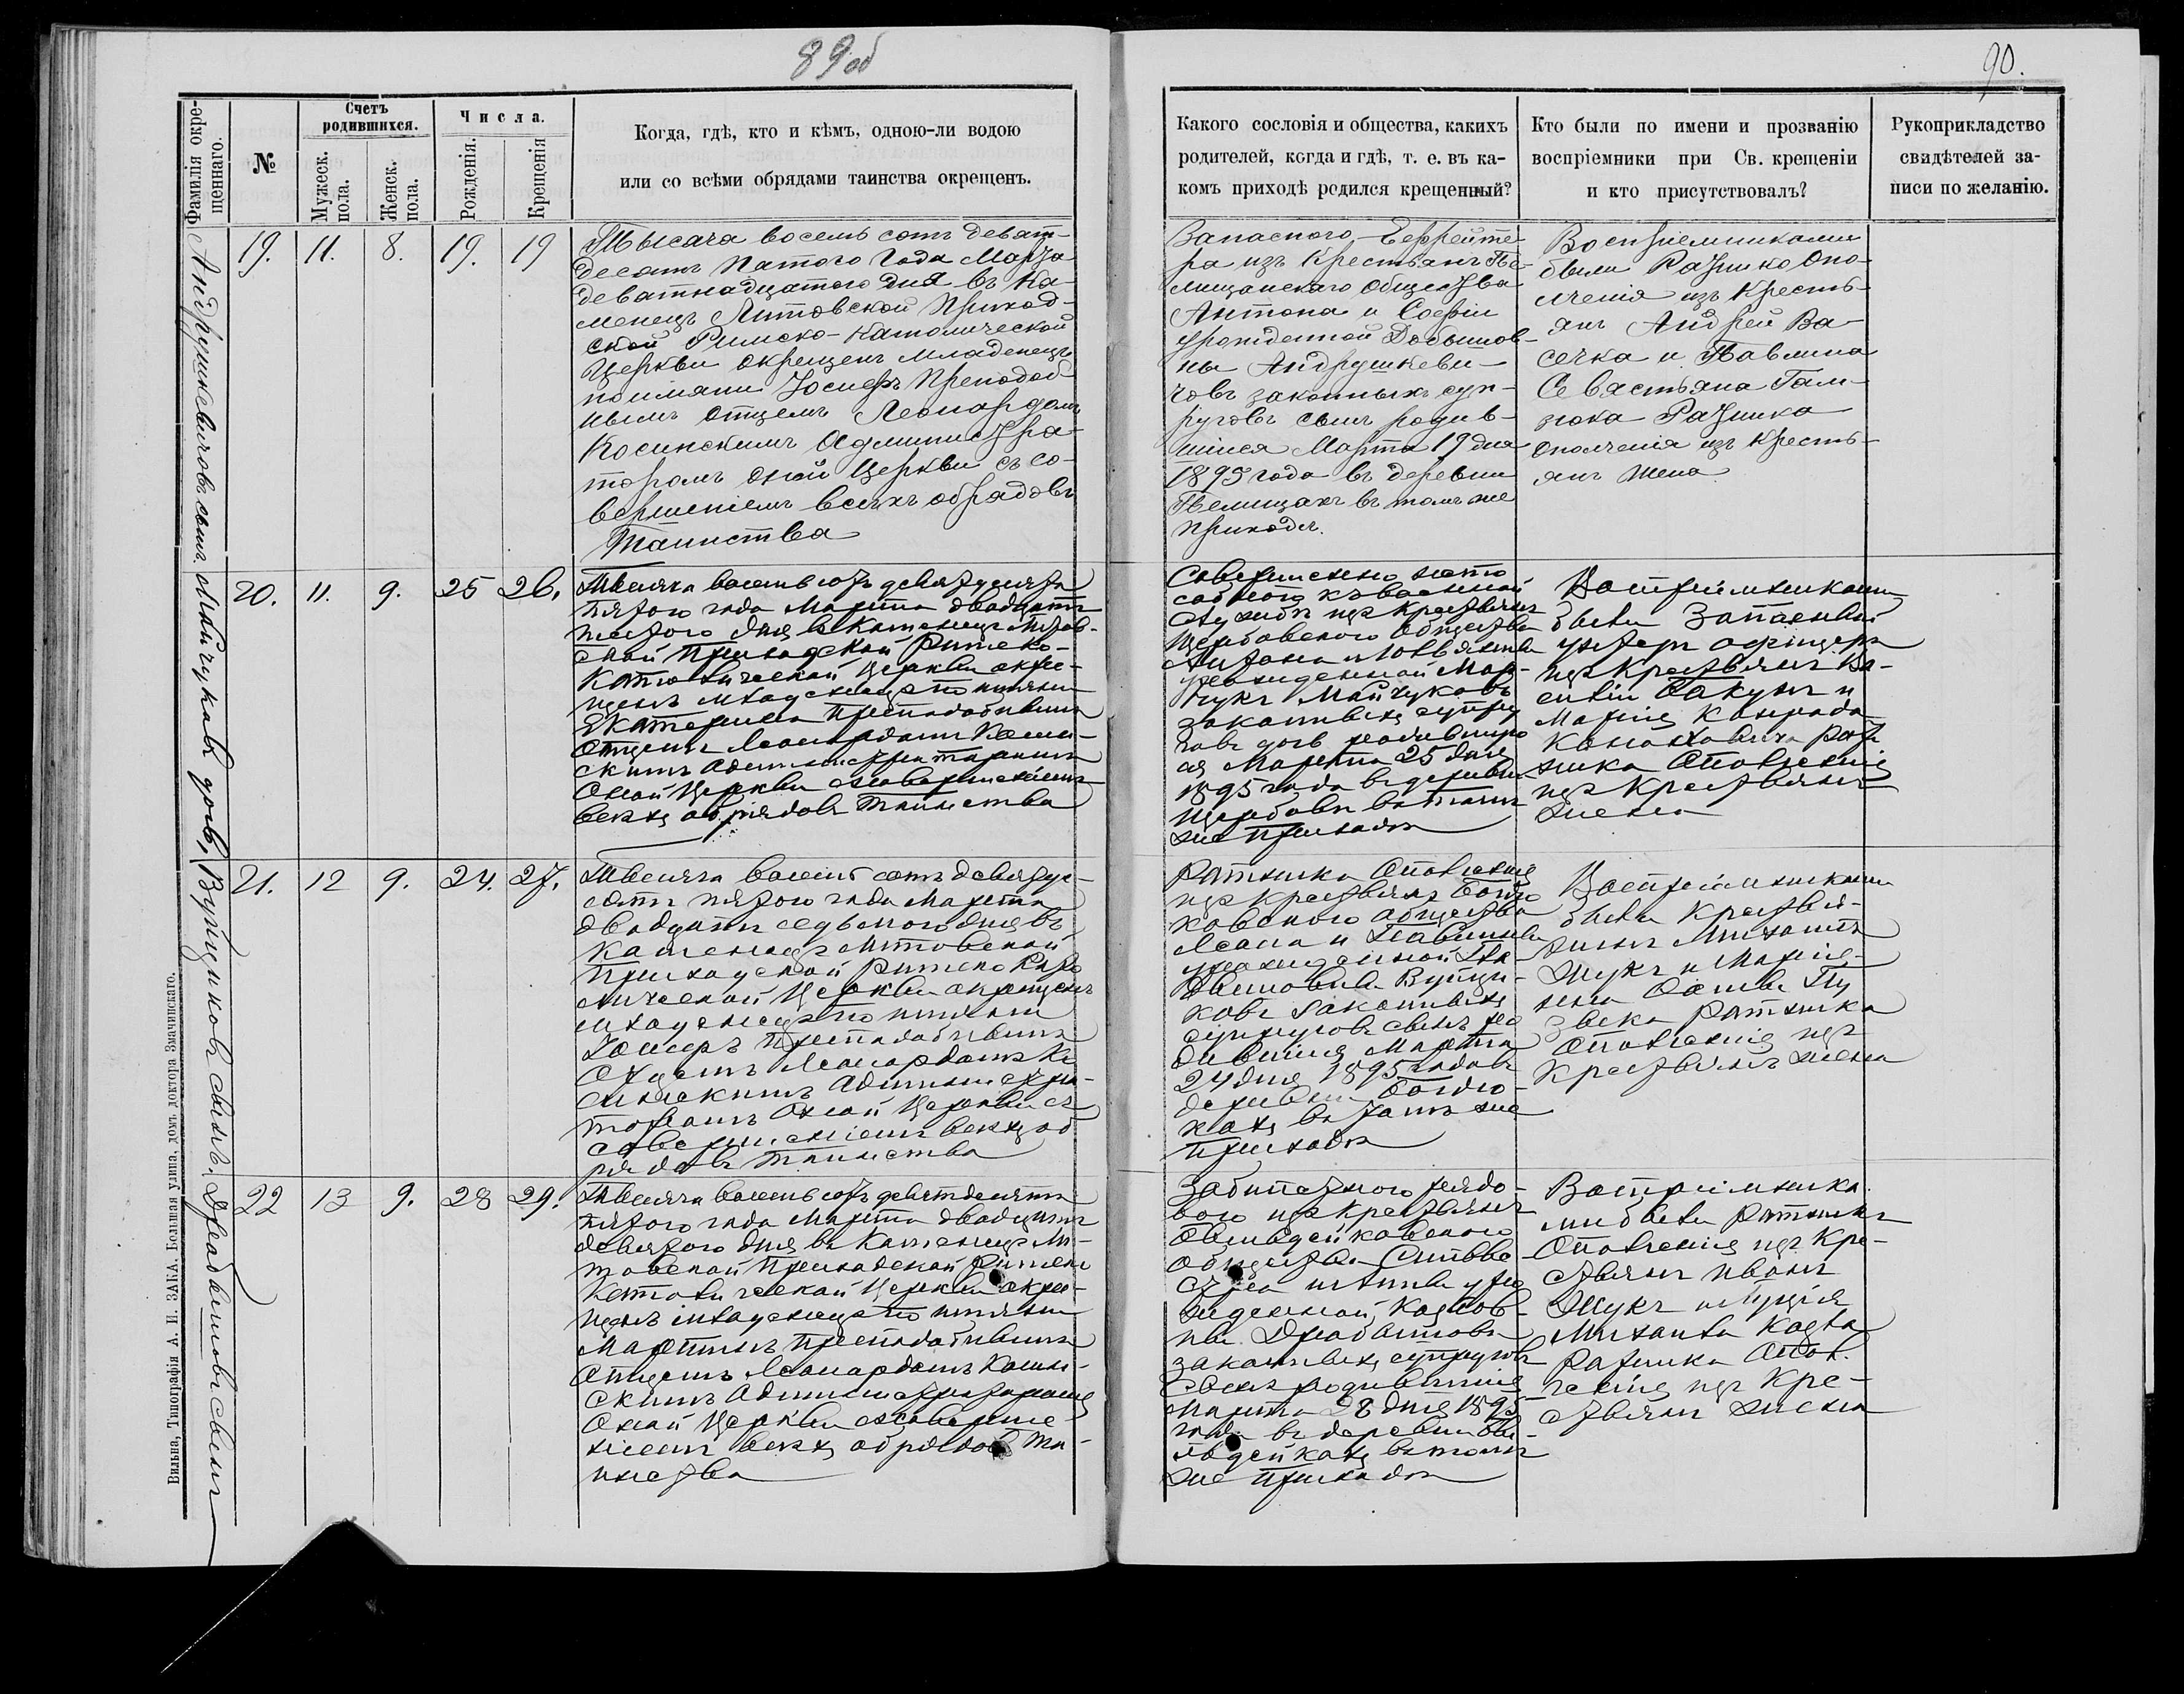 89об
90.
Фамилія окре-
щеннаго.
№
Счетъ
родившихся.
Мужеск.
пола.
Женск.
пола.
Числа.
Рожденія.
Крещенія
Когда, гдѣ, кто и кѣмъ, одною-ли водою
или со всѣми обрядами таинства окрещенъ.
Какого сословія и общества, какихъ
родителей, когда и гдѣ, т. е. въ ка-
комъ приходѣ родился крещенный?
Кто были по имени и прозванію
воспріемники при Св. крещеніи
и кто присутствовалъ?
Рукоприкладство
свидѣтелей за-
писи по желанію.
Андрушкевичовъ сынъ.
19. 11. 8. 19. 19
Тысяча восемь сотъ девят-
десятъ Пятого Года Марта
девятнадцатого дня въ Ка-
менецъ Литовской Приход-
ской Римско-Католической
Церкви окрещенъ младенецъ
по имяни Іосифъ Преподоб-
нымъ Отцемъ Леонардомъ
Косинскимъ Администра-
торомъ оной Церкви съ со-
вершеніемъ всѣхъ обрядовъ
Таинства
Запасного Ефрейто
ра изъ Крестьянъ Пе-
лищанского Общества
Антона и Софіи
урожденной
ны Андрушкеви-
човъ законныхъ суп-
руговъ сынъ родив-
шійся Марта 19 дня
1895 года въ деревни
Пелищахъ въ томъ же
Приходѣ.
Воспріемниками
были Ратнико Опо-
лченія изъ Кресть-
янъ Андрей Ва-
сечка и Павлина
Севастьяна Гам-
зюка Ратника
ополченія изъ Кресть-
янъ жена
Майчуковъ дочь,
20. 11. 9. 25 26.
Тысяча восемь сотъ девятдесята
Пятого года Марта двадцать
шестого дня въ Каменецъ Литов-
ской Приходской Римско-
Католической Церкви окре-
щенъ младенецъ по имяни
Екатерина Преподобнымъ
Отцемъ Леонардомъ Косин-
скимъ Администраторомъ
Оной Церкви съ совершеніемъ
всѣхъ обрядовъ Таинства
Совершенно неспо
собного къ военной
службѣ изъ Крестьянъ
Щербовского Общества
Антона и
урожденной Мар-
чукъ Майчуковъ
законныхъ супру
говъ дочь родивша
ся Марта 25 дня
1895 года въ деревни
Щербовѣ въ томъ
же Приходѣ
Воспріемниками
были Запасный
унтеръ офицеръ
изъ Крестьянъ Ва-
силій Бакунъ и
Марія Конрада
Ратника Ополченія
изъ Крестьянъ
жена
Вупщиковъ сынъ.
21. 12 9. 24. 27.
Тысяча восемь сотъ девятде-
сятъ пятого года Марта
двадцать седьмого дня въ
Каменецъ Литовской
Приходской Римско Като
лической Церкви окрещенъ
младенецъ по имяни
Іосифъ Преподобнымъ
Отцемъ Леонардомъ Ко
синскимъ Администра-
торомъ Оной Церкви съ
совершеніемъ всѣхъ об
рядовъ Таинства
Ратника Ополченія
изъ Крестьянъ
ковского общества
Леона и Павлины
урожденной
Вупщи-
ковъ законныхъ
супруговъ сынъ ро
дившійся Марта
24 дня 1895 года въ
деревни
кахъ въ томъ же
Приходѣ
Воспріемниками
были Крестья-
нинъ Михаилъ
Жукъ и Марія-
нна Осипа
Ратника
Ополченія изъ
Крестьянъ жена
сынъ
22 13 9. 28 29.
Тысяча восемь сотъ девятдесята
Пятого года Марта двадцать
девятого дня въ Каменецъ Ли-
товской Приходской Римско
Католической Церкви окре-
щенъ младенецъ по имяни
Мартинъ Преподобнымъ
Отцемъ Леонардомъ Косин-
скимъ Администраторомъ
Оной Церкви съ соверше-
ніемъ всѣхъ обрядовъ Та-
инства
рядо-
вого изъ Крестьянъ
общества Сильве
стра и Анны уро
жденной
законныхъ супруговъ
сынъ родившійся
Марта 28 дня 1895
года въ деревни
въ томъ
же Приходѣ
Воспріемника
ми были Ратникъ
Ополченія изъ Кре-
стьянъ Иванъ
Жукъ и Луція
Михаила
Ратника Опол-
ченія изъ Кре-
стьянъ жена
Вильна, Типографія А. И. ЗАКА. Большая улица, домъ доктора Змачинскаго.